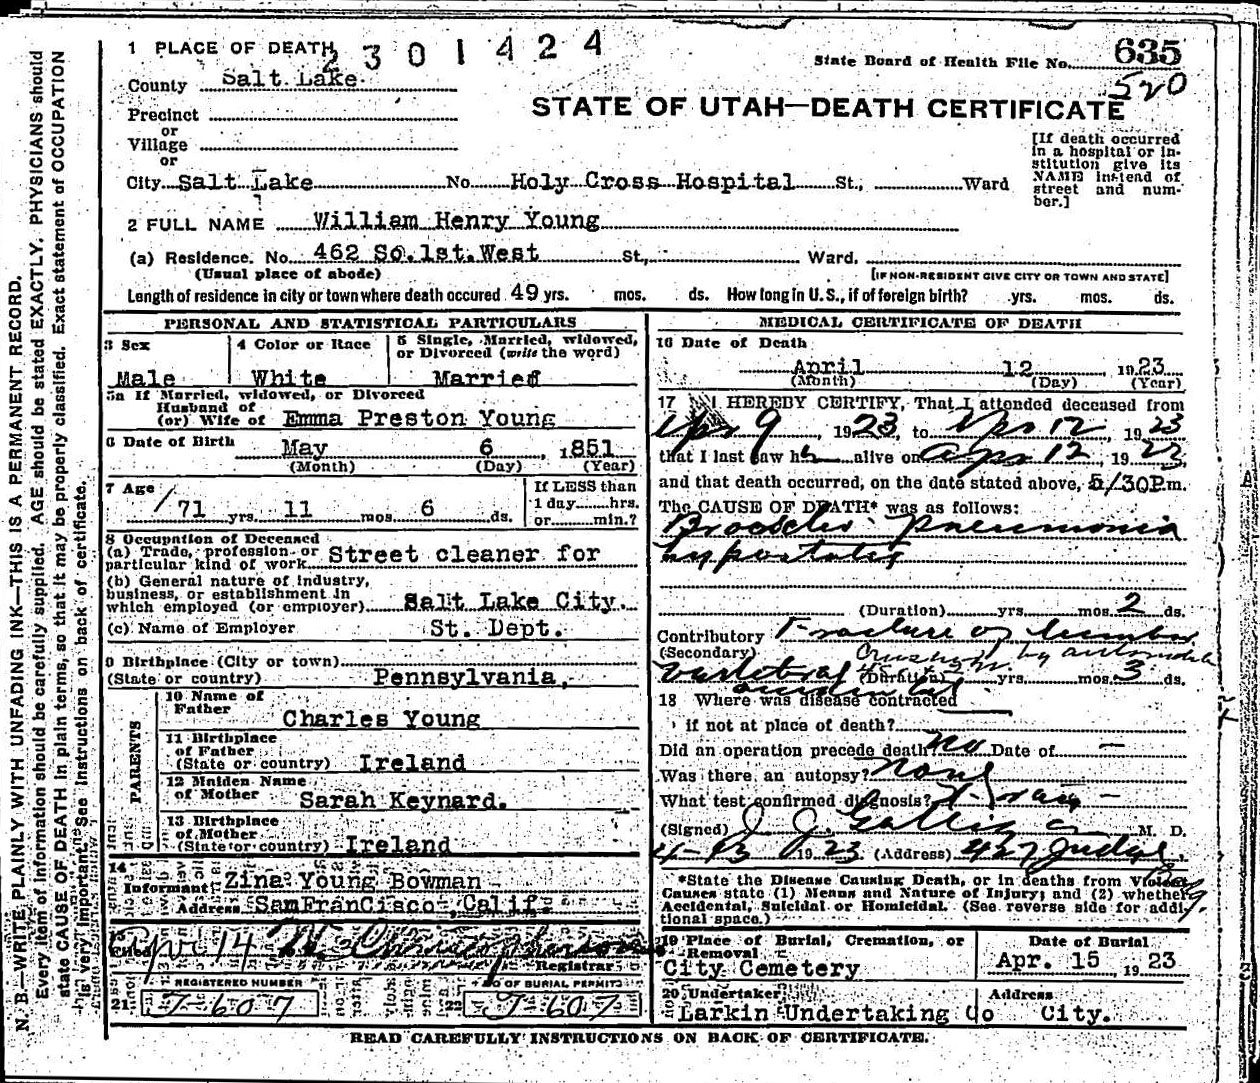 1 PLACE OF DEATH
2301424
State Board of Health File No. 635
520
County Salt Lake
STATE OF UTAH—DEATH CERTIFICATE
Precinct
or
Village
or
[If death occurred
in a hospital or in-
stitution give its
NAME instead of
street and num-
ber.]
City Salt Lake No. Holy Cross Hospital St., Ward
2 FULL NAME William Henry Young
(a) Residence. No. 462 So.1st.West St., Ward.
(Usual place of abode) [IF NON-RESIDENT GIVE CITY OR TOWN AND STATE]
Length of residence in city or town where death occured 49 yrs. mos. ds. How long in U. S., if of foreign birth? yrs. mos. ds.
PERSONAL AND STATISTICAL PARTICULARS
3 Sex 4 Color or Race 5 Single, Married, widowed,
or Divorced (write the word)
Male White Married
5a If Married, widowed, or Divorced
Husband of
(or) Wife of Emma Preston Young
6 Date of Birth May 6 , 1851
(Month) (Day) (Year)
7 Age If LESS than
71 yrs. 11 mos 6 ds. 1 day hrs.
or min.?
8 Occupation of Deceased
(a) Trade, profession or
particular kind of work Street cleaner for
(b) General nature of industry,
business, or establishment in
which employed (or employer) Salt Lake City.
(c) Name of Employer St. Dept.
9 Birthplace (City or town)
(State or country) Pennsylvania.
PARENTS
10 Name of
Father Charles Young
11 Birthplace
of Father
(State or country) Ireland
12 Maiden Name
of Mother Sarah Keynard.
13 Birthplace
of Mother
(State or country) Ireland
14
Informant Zina Young Bowman
Address SamFranCisco ,Calif.
Filed Apr 14 Registrar
REGISTERED NUMBER NO OF BURIAL PERMIT
21 J-607 J-607
MEDICAL CERTIFICATE OF DEATH
16 Date of Death
April 12 1923
(Month) (Day) (Year)
17 I HEREBY CERTIFY, That I attended deceased from
Apr 9, 1923, to Apr 12, 1923
that I last saw h alive on Apr 12, 1923,
and that death occurred, on the date stated above, 5/30P.m.
The CAUSE OF DEATH* was as follows:
Broncho-pneumonia
hypostatic
(Duration) yrs. mos. 2 ds.
Contributory Fracture of lumbar
(Secondary) by automobile
vertebrae (Duration) yrs. mos. 3 ds.
accidental
18 Where was disease contracted
if not at place of death?
Did an operation precede death? No Date of —
Was there an autopsy? None
What test confirmed diagnosis? X-ray —
(Signed) J. J. Galligan M. D.
4-13 1923 (Address) 427 Judge
Bldg.
*State the Disease Causing Death, or in deaths from Violent
Causes state (1) Means and Nature of Injury; and (2) whether
Accidental, Suicidal or Homicidal. (See reverse side for addi-
tional space.)
19 Place of Burial, Cremation, or Date of Burial
Removal
City Cemetery Apr. 15 1923
20 Undertaker Address
Larkin Undertaking Co City.
READ CAREFULLY INSTRUCTIONS ON BACK OF CERTIFICATE.
N. B.—WRITE PLAINLY WITH UNFADING INK—THIS IS A PERMANENT RECORD.
Every item of information should be carefully supplied. AGE should be stated EXACTLY. PHYSICIANS should
state CAUSE OF DEATH in plain terms, so that it may be properly classified. Exact statement of OCCUPATION
is very important. See instructions on back of certificate.